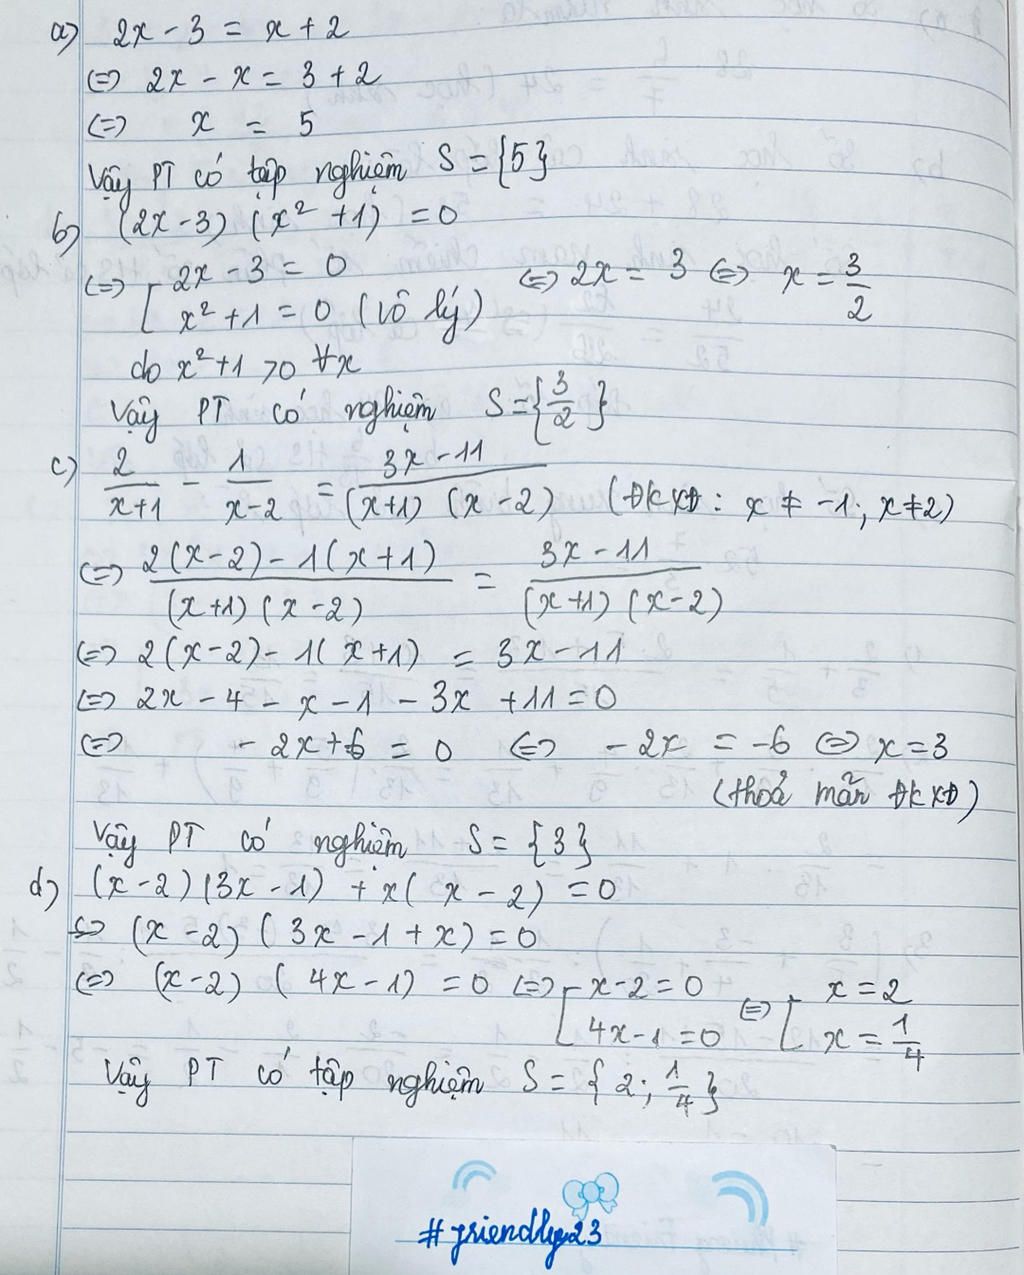 a) 2x - 3 = x + 2
<=> 2x - x = 3 + 2
<=> x = 5
Vậy PT có tập nghiệm S = {5}
b) (2x - 3) (x² + 1) = 0
<=> [ 2x - 3 = 0 <=> 2x = 3 <=> x = 3/2
x² + 1 = 0 (vô lý)
do x² + 1 > 0 ∀x
Vậy PT có nghiệm S = {3/2}
c) 2/(x+1) - 1/(x-2) = (3x - 11)/((x+1) (x-2)) (ĐKXĐ: x ≠ -1; x ≠ 2)
<=> (2(x-2) - 1(x+1))/((x+1) (x-2)) = (3x - 11)/((x+1) (x-2))
<=> 2(x-2) - 1(x+1) = 3x - 11
<=> 2x - 4 - x - 1 - 3x + 11 = 0
<=> - 2x + 6 = 0 <=> - 2x = -6 <=> x = 3
(thoả mãn ĐKXĐ)
Vậy PT có nghiệm S = {3}
d) (x - 2) (3x - 1) + x(x - 2) = 0
<=> (x - 2) (3x - 1 + x) = 0
<=> (x - 2) (4x - 1) = 0 <=> [ x - 2 = 0 <=> [ x = 2
4x - 1 = 0 x = 1/4
Vậy PT có tập nghiệm S = {2; 1/4}